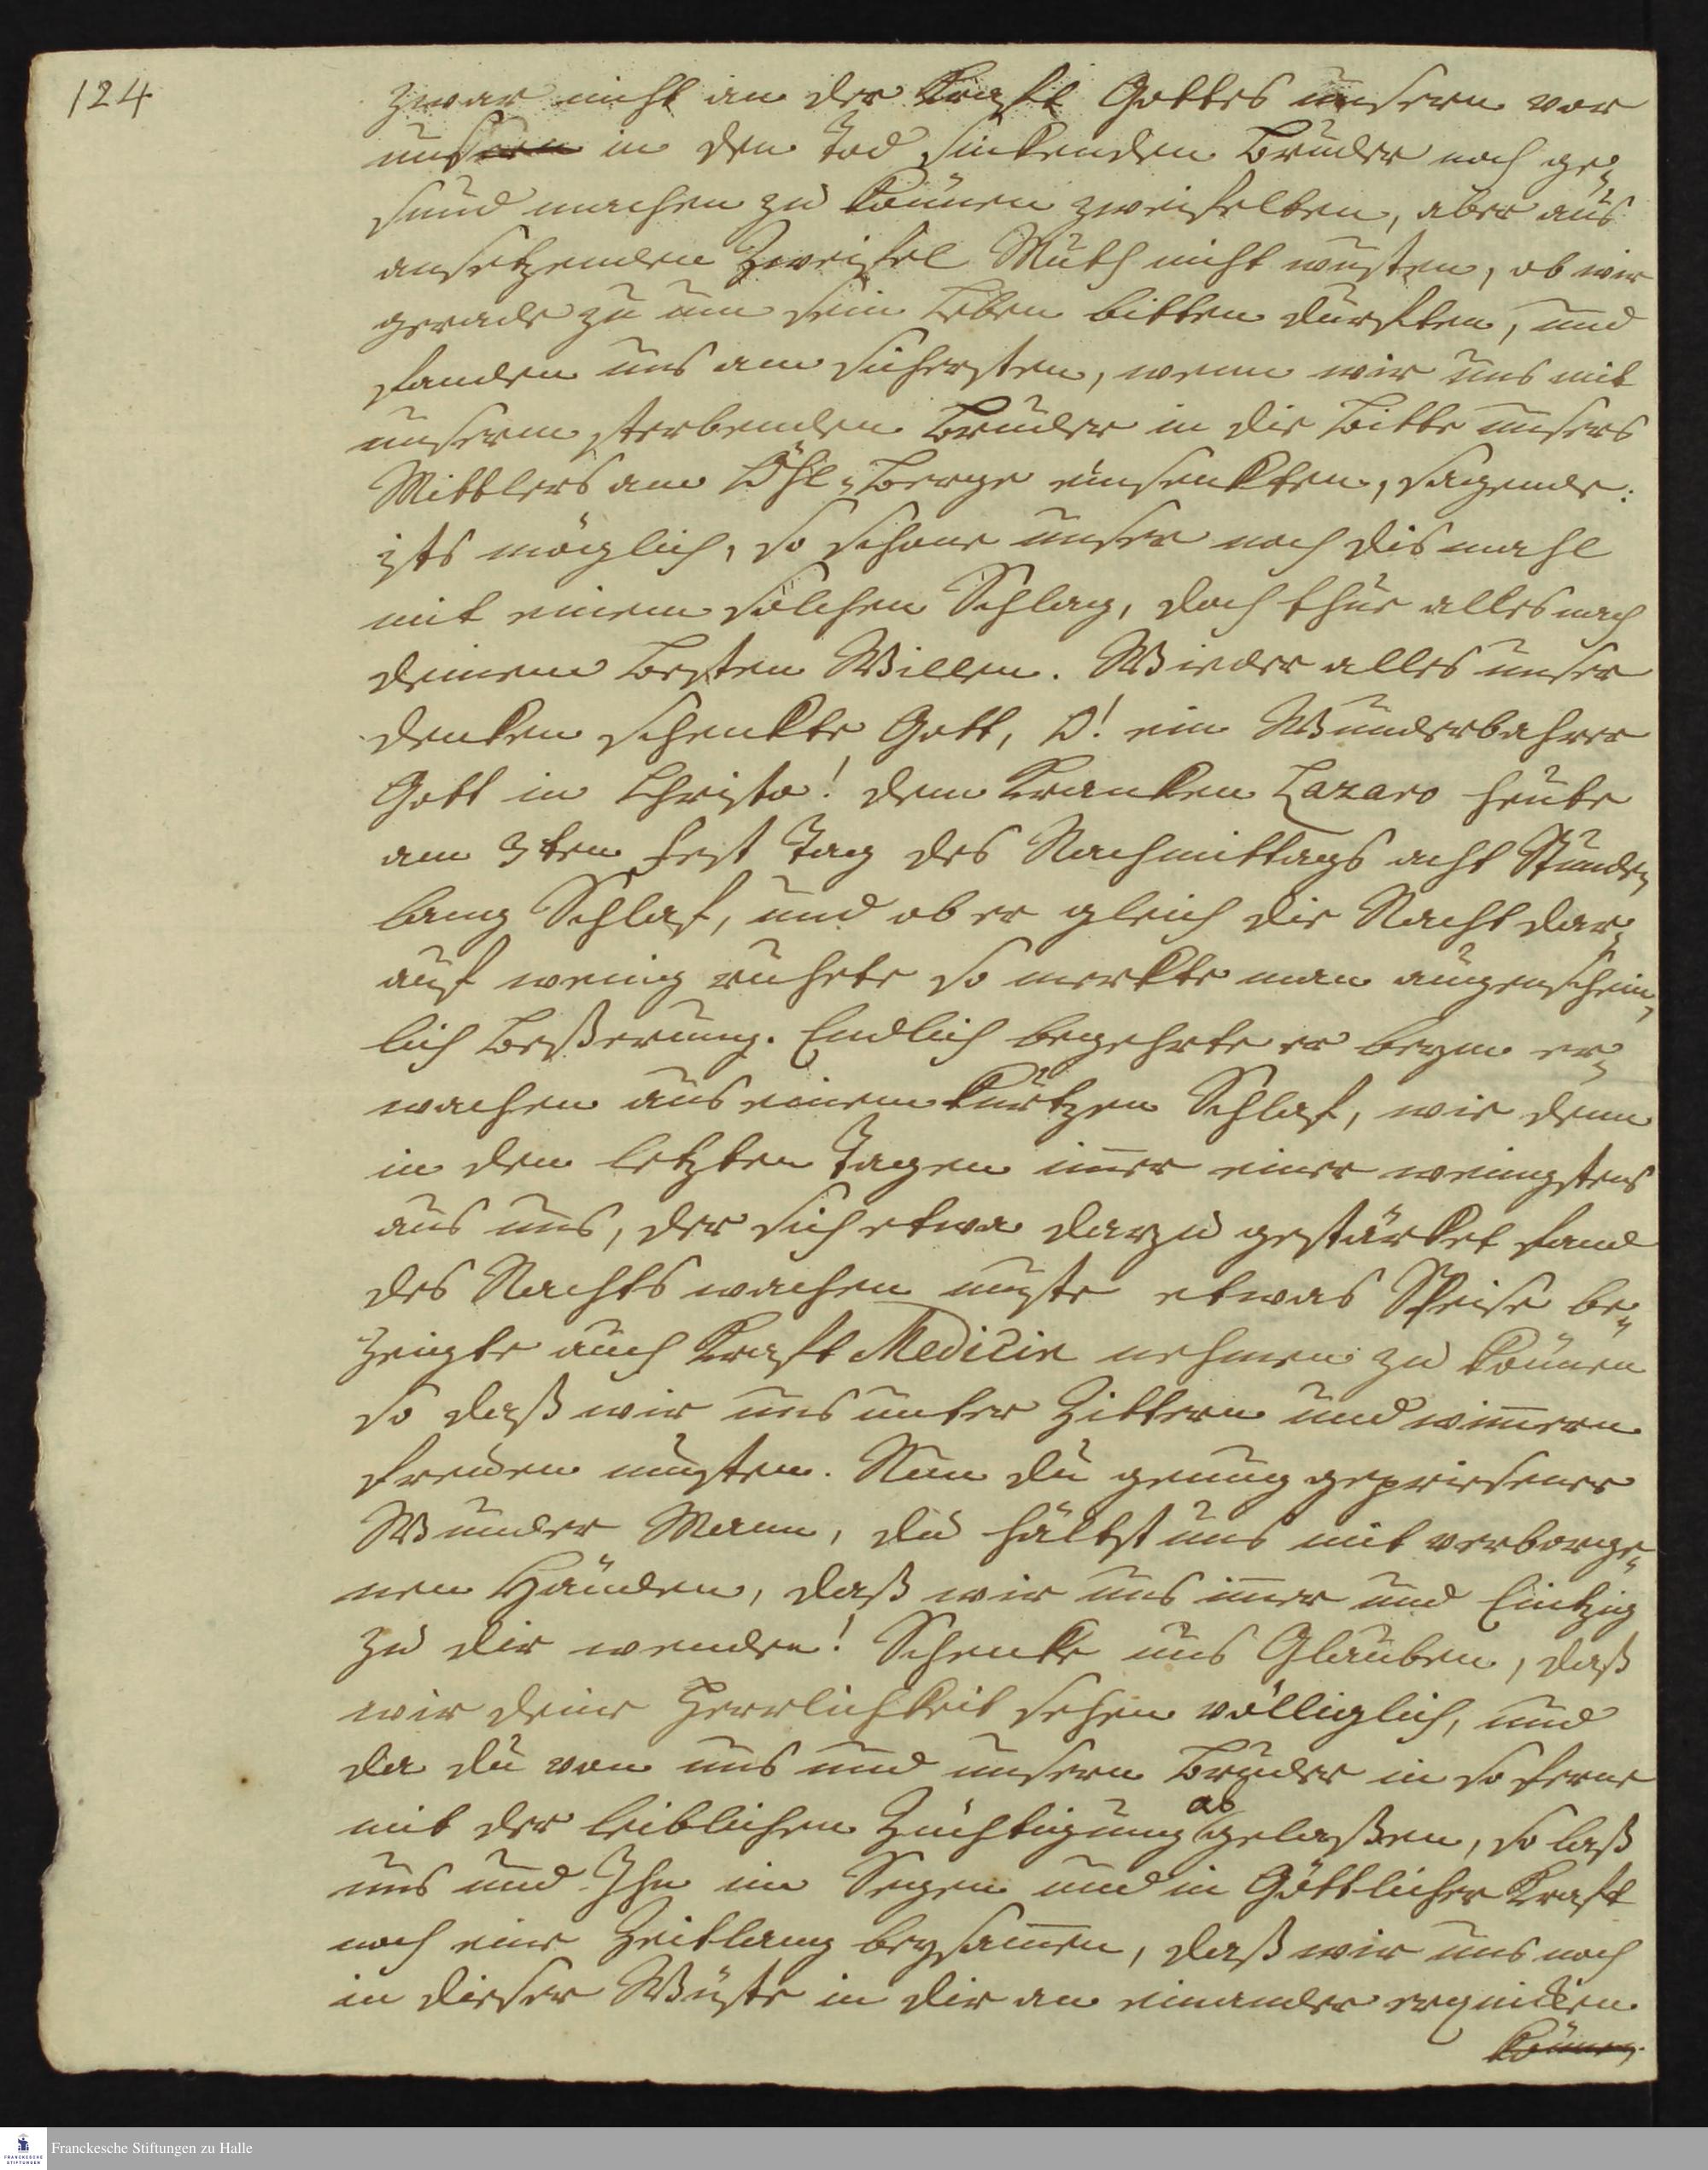 124
zwar nicht an der Krafft Gottes unsern vor
unsern in den Tod sinkenden Bruder noch ge-
sund machen zu können zweifelten, aber aus
ansetzenden Zweifel Muth nicht wusten, ob wir
gerade zu um sein Leben bitten durften, und
fanden uns am sichersten, wenn wir uns mit
unserm sterbenden Bruder in die Bitte unsers
Mittlers am Öhl-Berge einsenkten, sagende:
ists möglich, so schone unser noch dismahl
mit einem solchen Schlag, doch thue alles nach
deinem besten Willen. Wieder alles unser
denken schenkte Gott, O! ein Wunderbahrer
Gott in Christo! dem Kranken Lazaro heute
am 3ten Fest Tag des Nachmittags acht Stunden
lang Schlaf, und ob er gleich die Nacht dar-
auf wenig ruhete so merkte man augenschein-
lich Beßerung. Endlich begehrte er beym er-
wachen aus einem kurtzen Schlaf, wie denn
in den letzten Tagen im̄er einer wenigstens
aus uns, der sich etwa darzu gestärket fand
des Nachts wachen muste etwas Speise be-
zeugte auch Kraft Medicin nehmen zu können
so daß wir uns unter Zittern und wim̄ern
freuen musten. Nun du genung gepriesener
Wunder Mann, du hältst uns mit verborge-
nen Händen, daß wir uns im̄er und Eintzig
zu dir wenden! Schenke uns Glauben, daß
wir deine Herrlichkeit sehen völliglich, und
da du von uns und unsern Bruder in so ferne
mit der leiblichen Züchtigung ab gelaßen, so laß
uns und Ihn im Segen und in Göttlicher Kraft
noch eine Zeitlang beysam̄en, daß wir uns noch
in dieser Wüste in dir an einander erquicken
können.
Franckesche Stiftungen zu Halle